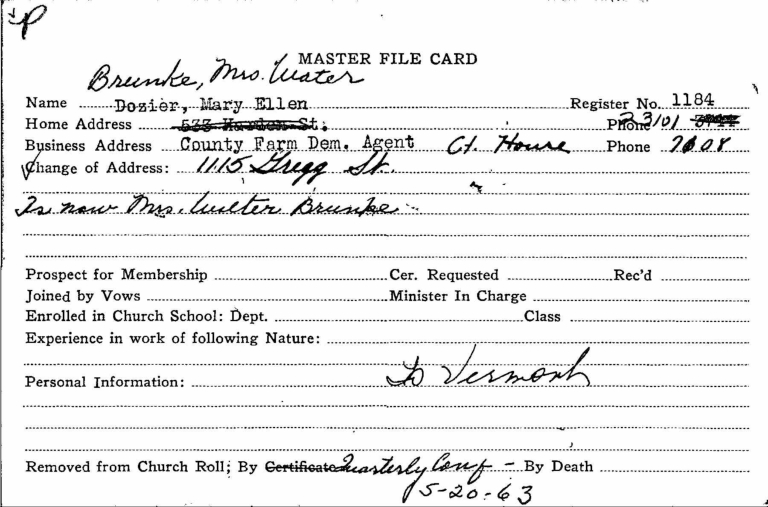 P
MASTER FILE CARD
Brunke, Mrs. Water
Name Dozier, Mary Ellen Register No. 1184
Home Address 533 Harden St. Phone 23101
Business Address County Farm Dem. Agent Ct. House Phone 7608
Change of Address: 1115 Gregg St.
Is now Mrs. Walter Brunke
Prospect for Membership Cer. Requested Rec'd
Joined by Vows Minister In Charge
Enrolled in Church School: Dept. Class
Experience in work of following Nature:
Personal Information: To Vermont
Removed from Church Roll; By Certificate Quarterly Conf - By Death
5-20-63